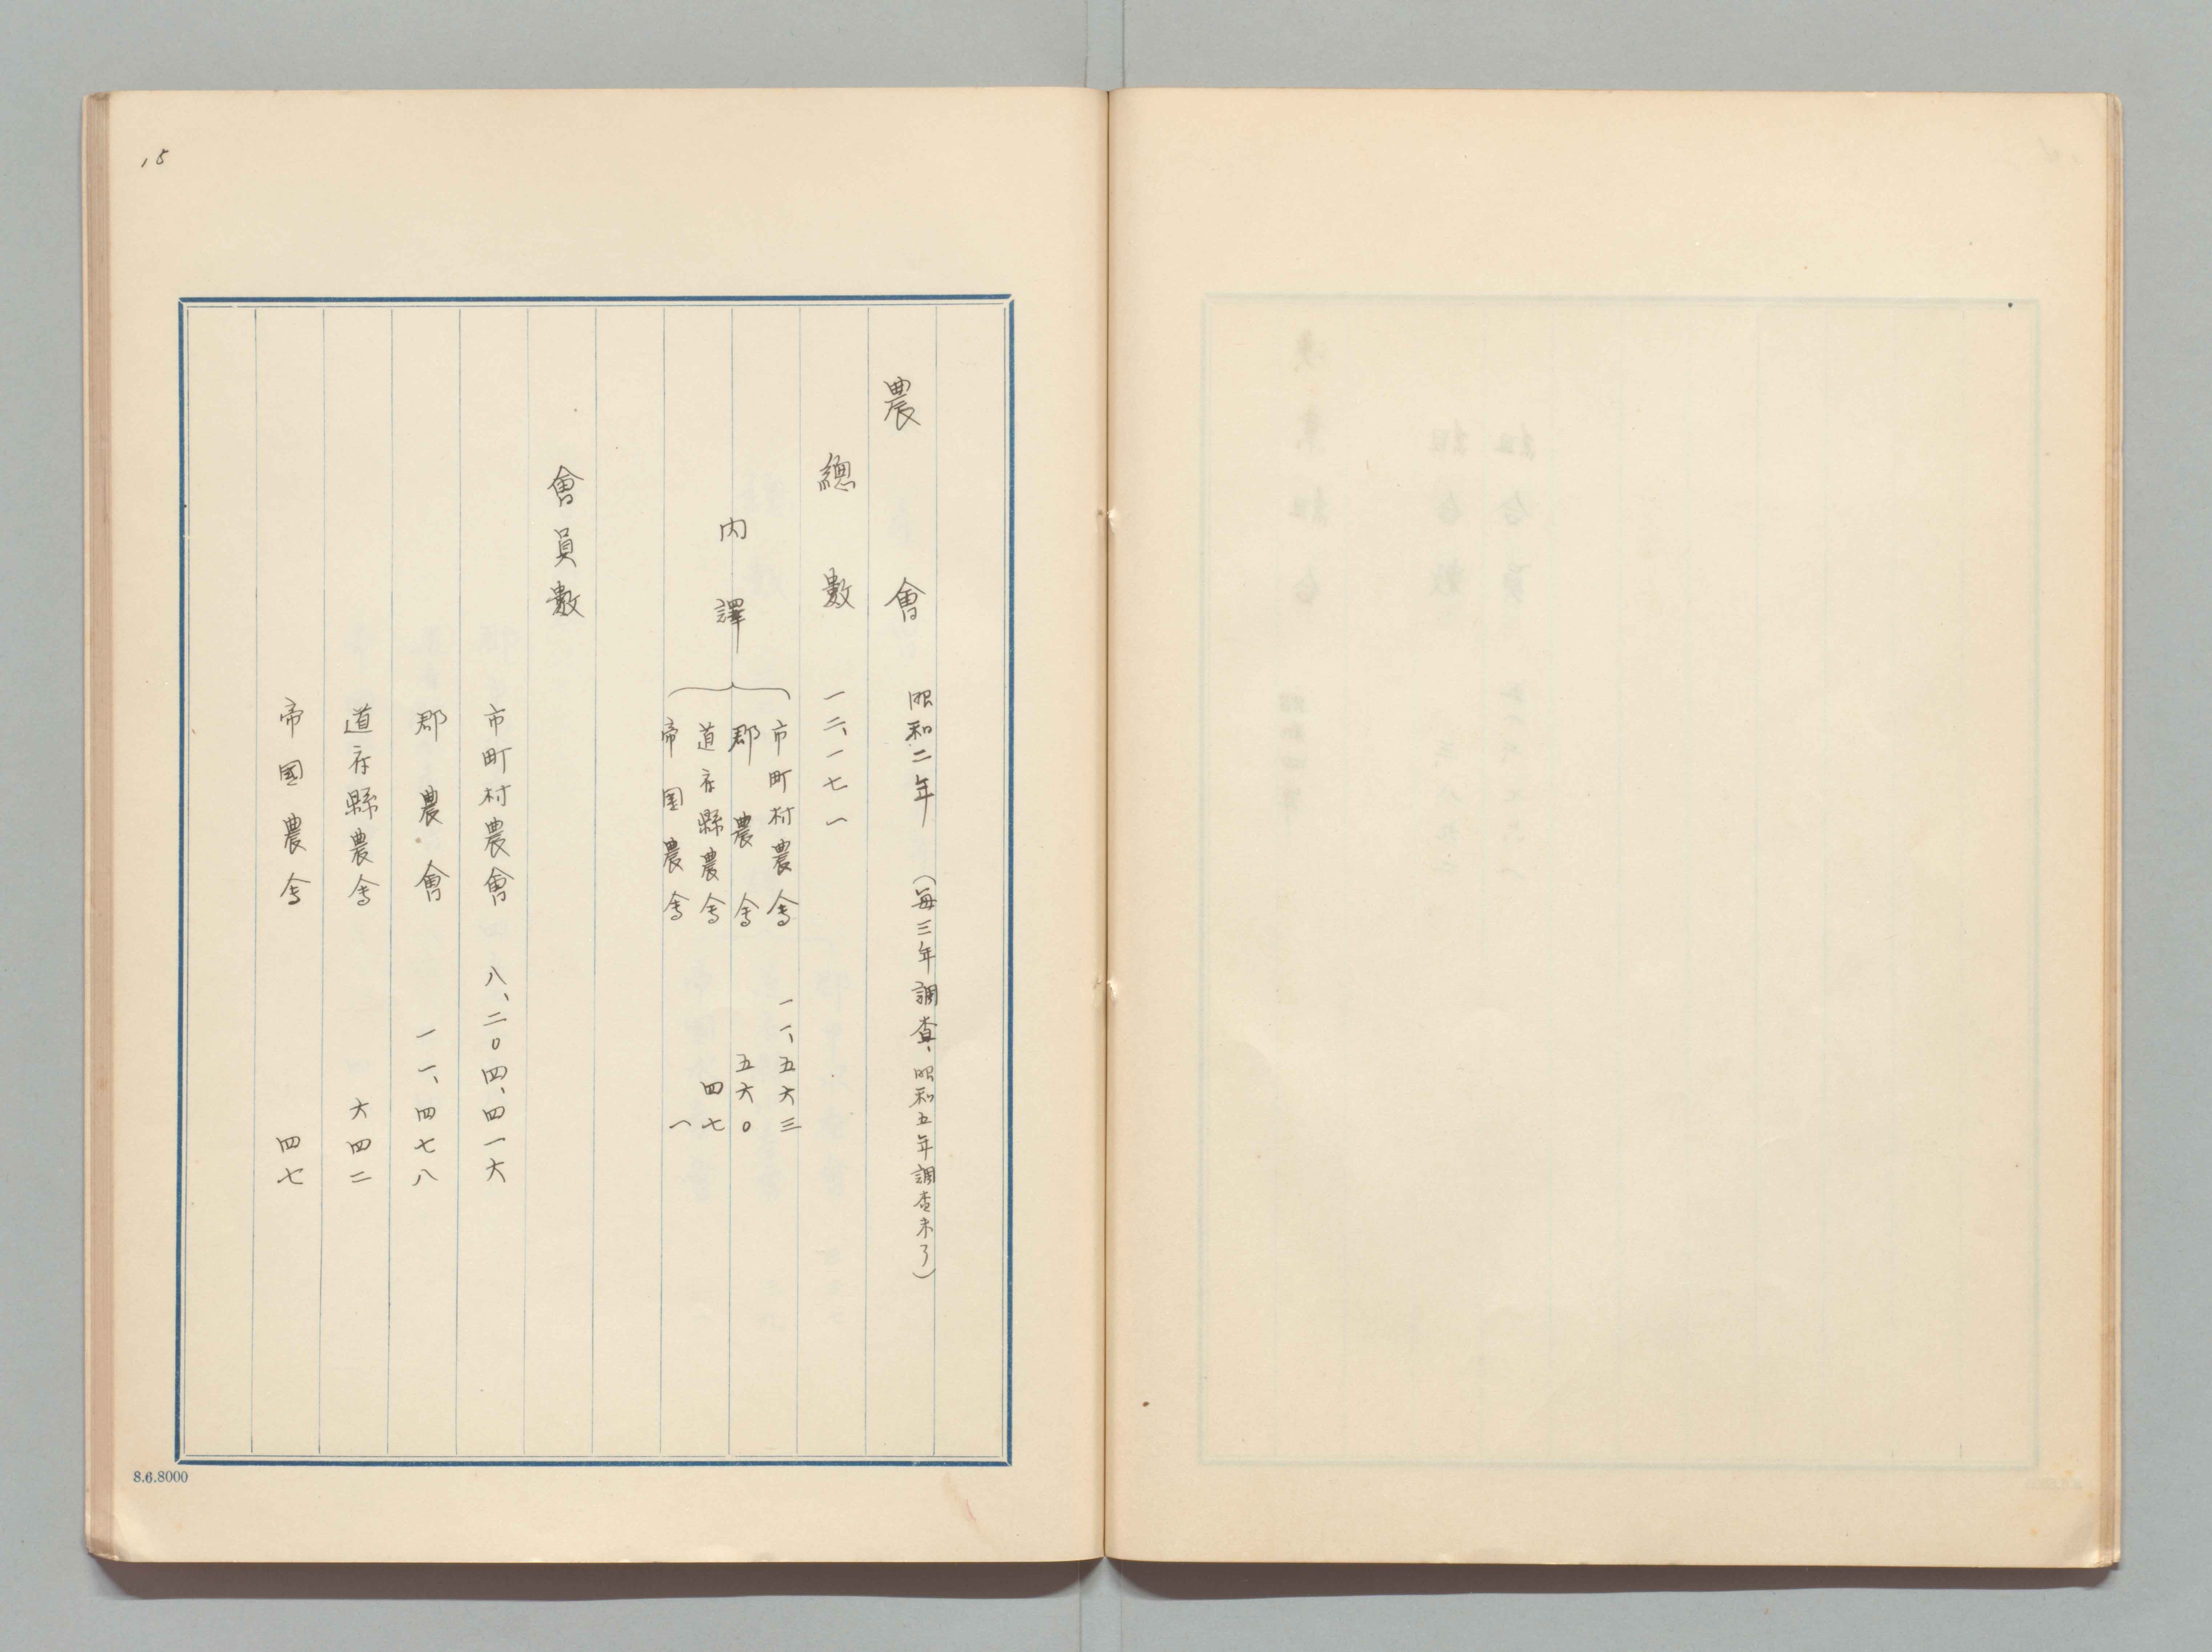 15
農會 昭和二年 (毎三年調査、昭和五年調査未了)
總數 一二、一七一
内譯
市町村農會 一一、五六三
郡農會 五六〇
道府縣農會 四七
帝国農會 一
會員數
市町村農會 八、二〇四、四一六
郡農會 一一、四七八
道府縣農會 六四二
帝國農會 四七
8.6.8000